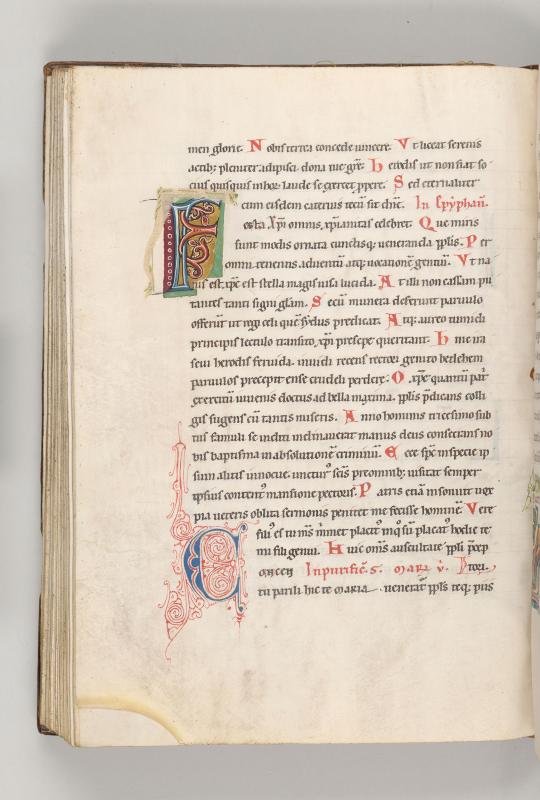 men glorie. Nobis terrea concede uincere. Ut liceat serenis
actib; pleniter adipisci dona tue grē. Herodis ut non fiat so
cius quisquis in hoc laude se exercet ppere. Sed eternaliter
cum eisdem cateruis tecū sit dn̄e. In epyphan̄.
Festa xp̄i omnis xp̄ianitas celebret. Que miris
sunt modis ornata cunctisq; ueneranda pplis. Per
omnitenentis aduentū atq; uocationē gentiū. Ut na
tus est xp̄c est stella magis uisa lucida. At illi non cassam pu
tantes tanti signi glām. Secū munera deferunt paruulo
offerūt ut regi celi quē sydus predicat. Atq; aureo tumidi
principis lectulo transito xp̄i presepe queritant. Hinc ira
seui herodis feruida inuidi recens rectori genito bethlehem
paruulos precepit ense crudeli perdere. O xp̄e quantū pat̄
exercitū iuuenis doctus ad bella maxima pplis p̄dicans colli
gis sugens cū tantis miseris. Anno hominis tricesimo sub
tus famuli se incliti inclinauerat manus deus consecrans no
bis baptisma in absolutionē criminū. Ecce sp̄c in specie ip
sum alitis innocue uncturꝰ sc̄is pre omnib; uisitat semper
ipsius contentꝰ mansione pectoris. Patris etiā insonuit uox
pia ueteris oblita sermonis penitet me fecisse hominē. Vere
filiꝰ es tu mꝰ m̄met placitꝰ in q̊ sū placatꝰ hodie te
mi fili genui. Huic om̄s auscultate ppli p̄cep
Concentu
In purific̄. s. mari. v.
tu parili hic te maria uenerat̄ ppls teq; piis